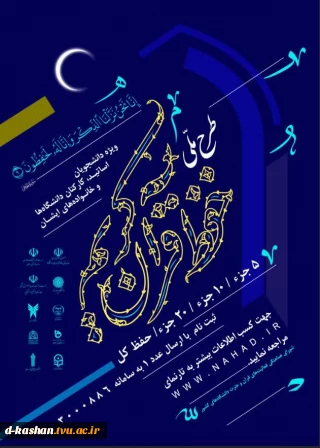 إِنَّا نَحْنُ نَزَّلْنَا الذِّكْرَ وَإِنَّا لَهُ لَحَافِظُونَ
طرح ملی
حفظ قرآن کریم
ویژه دانشجویان
اساتید، کارکنان دانشگاه‌ها
و خانواده‌های ایشان
۵ جزء / ۱۰ جزء / ۲۰ جزء / حفظ کل
ثبت نام با ارسال عدد ۱ به سامانه ۳۰۰۰۰۸۸۶
جهت کسب اطلاعات بیشتر به تارنمای
WWW.NAHAD.IR
مراجعه نمایید
d-kashan.tvu.ac.ir